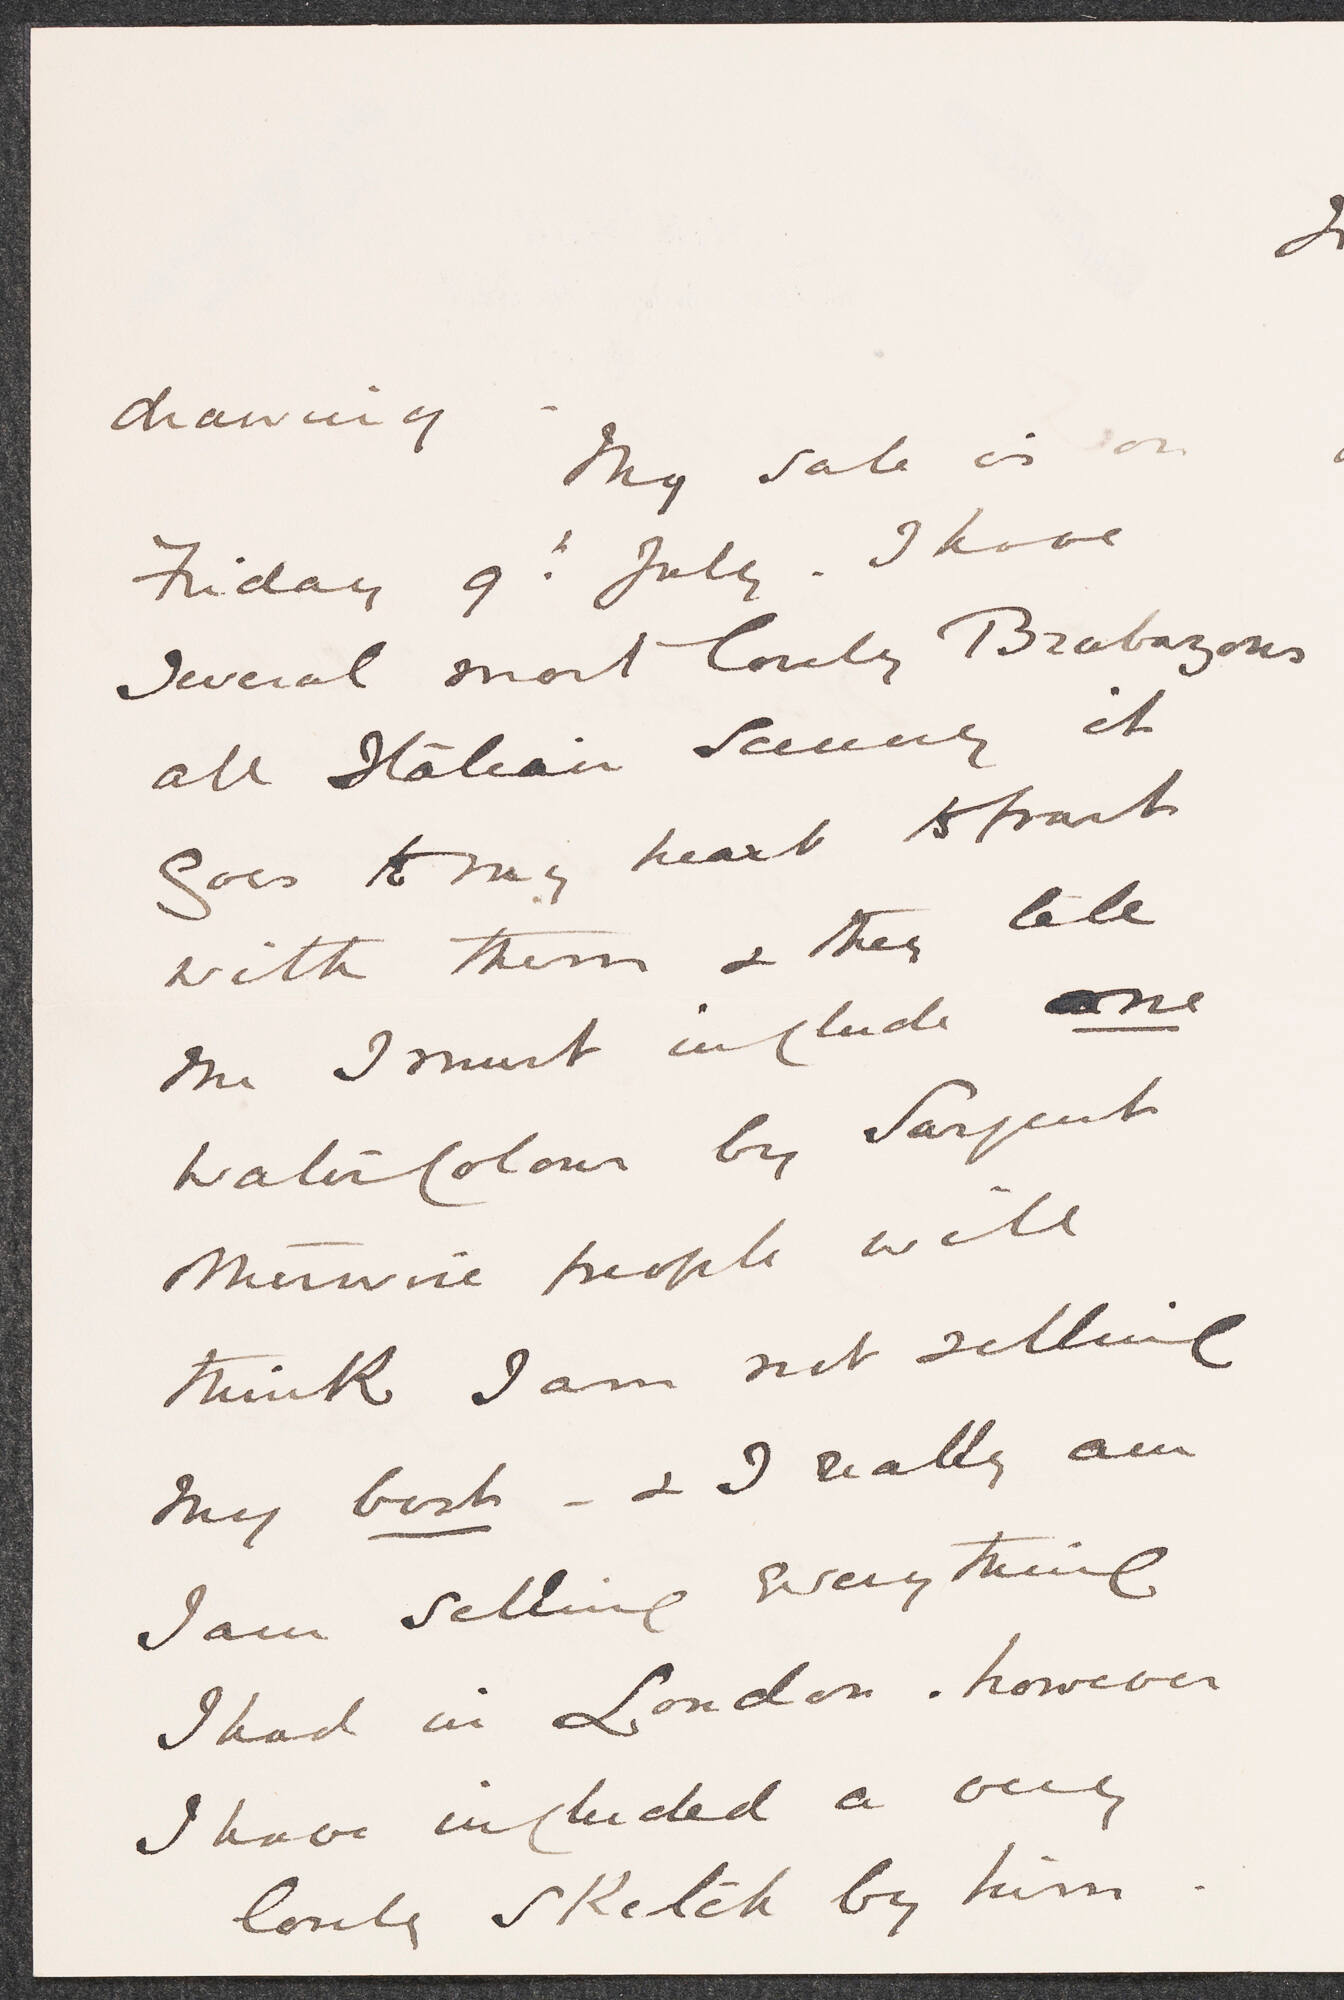 drawing -
My sale is on
Friday 9th July. I have
Several most lovely Brabazons
all Italian Scenery it
goes to my heart to part
with them & they tell
me I must include one
watercolour by Sargent
Otherwise people will
think I am not selling
my best - & I really am
I am selling everything
I had in London. however
I have included a very
lovely sketch by him.